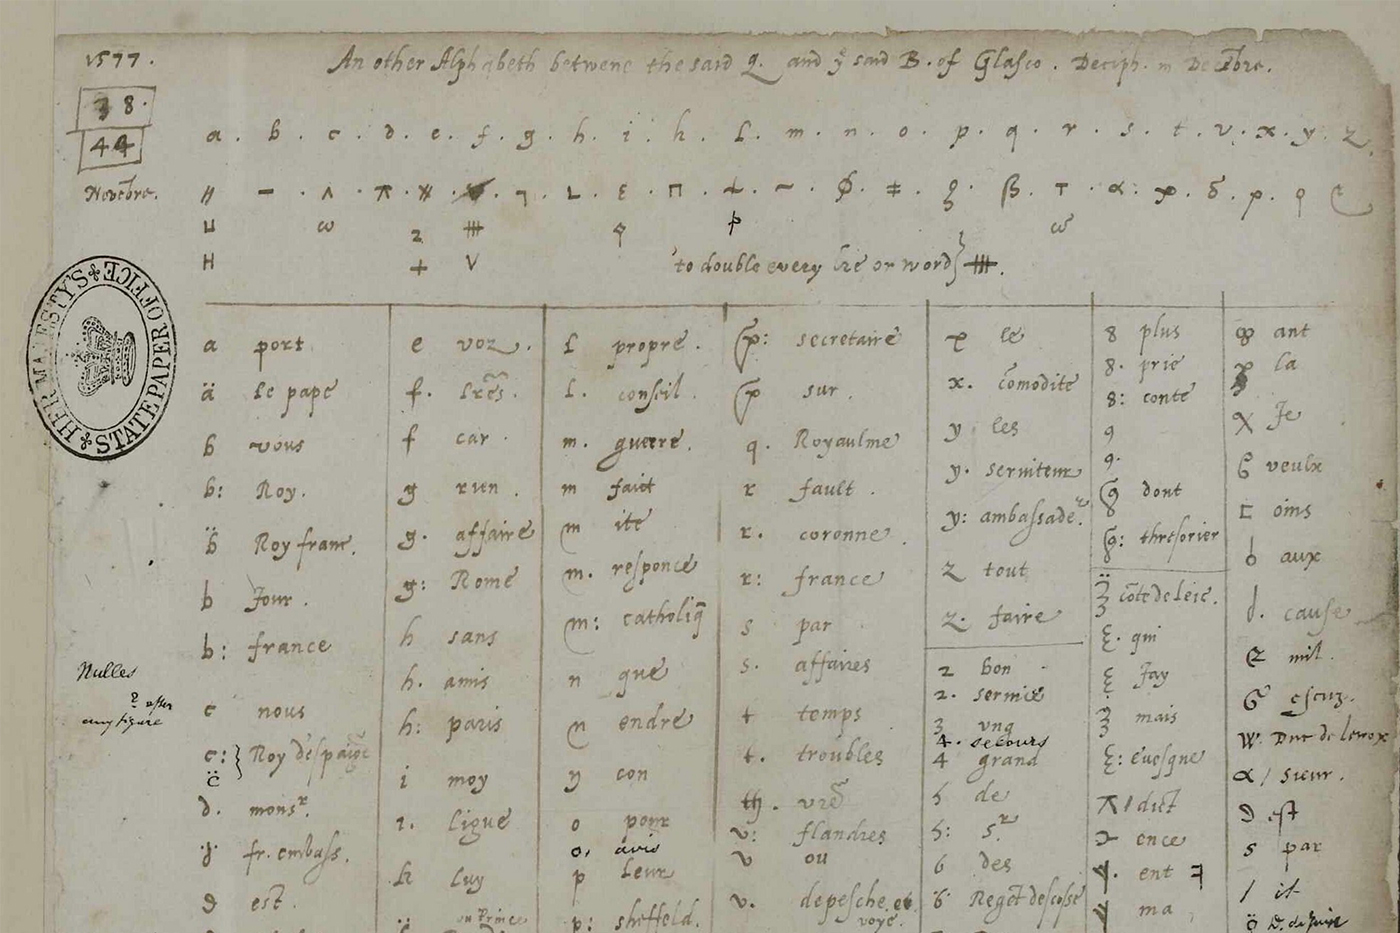 1577.
An other Alphabeth betwene the said Q. and ye said B. of Glasco. Deciph. in
38.
44
Novēbre.
a. b. c. d. e. f. g. h. i. k. l. m. n. o. p. q. r. s. t. v. x. y. z.
to double every lre or word
HER MAJESTY'S STATE PAPER OFFICE
a port
ä le pape
b vous
b: Roy.
b̈ Roy franc.
b Jour.
b: france
Nulles
after
any figure
c nous
c: Roy despaigne
c̈
d. monsr.
fr. embass.
est.
e voz.
f. lrēs.
f car.
g rien.
g. affaire
g: Rome
h sans
h. amis
h: paris
i moy
i. ligue
k luy
ou Prince
l propre.
l. conseil.
m. guerre.
m faict
m ite
m. responce
m: catholiq̄
n que
n endre
y con
o pour
o. avis
p leur
p: sheffeld.
secretaire
sur.
q. Royaulme
r fault.
r. coronne.
r: france
s par
s. affaires
t temps
t. troubles
th. vrē
v: flandres
v ou
v. depesche et
voye.
x le
x. cōmodite
y les
y. serviteur
y: ambassader.
z tout
z. faire
2 bon
2. service
3 ung
4. secours
4 grand
5 de
5: Sr
6 des
6̈ Reget descosse
8 plus
8. prie
8: conte
9
9.
dont
: thresorier
cōte de leic.
qui
Jay
mais
: evesque
dict
ence
ent
ma
ant
la
Je
veulx
oins
aux
d. cause
mil.
escuz.
w. Duc de lenox
α/ sieur.
est
s par
/ it
ö D. de Guise